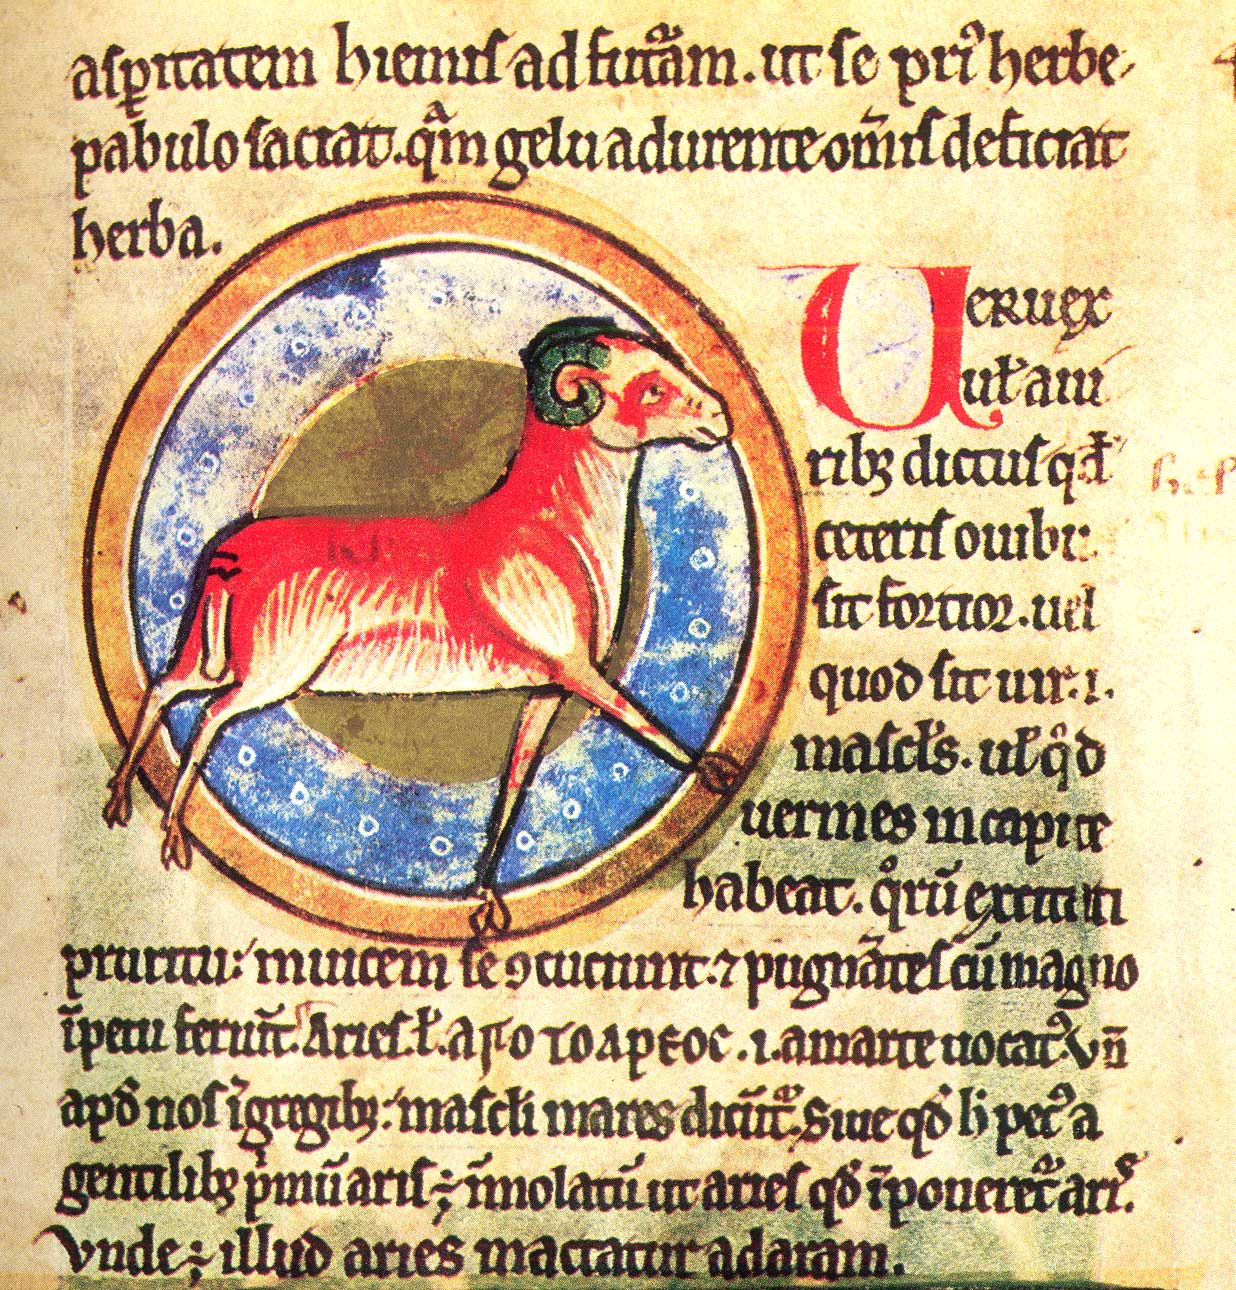 asꝑitatem hiemis ad futurā. ut se priꝰ herbe
pabulo saciat. qm̅ gelu adurente om̅is deficiat
herba.
Ueruex
ul̵ a ui
ribꝫ dictus qđ
ceteris ouibꝰ
sit fortior. uel
quod sit uir. i.
mascl̵s. ul̵ qđ
uermes in capite
habeat. qͦrū excitati
pruritu: inuicem se ꝯcuciunt. ⁊ pugnātes cū magno
īpetu feriūt. Aries l̵. aπo τo apεoc. i. a marte uocatꝰ. Vn̅
apđ nos ī gregibꝫ: mascl̵i mares dicūtᷣ. Siue qđ h̵ pecꝰ a
gentilibꝫ pͥmū aris ÷ īmolatū ut aries qđ īponeretᷣ aris.
Vnde ÷ illud aries mactatur ad aram.